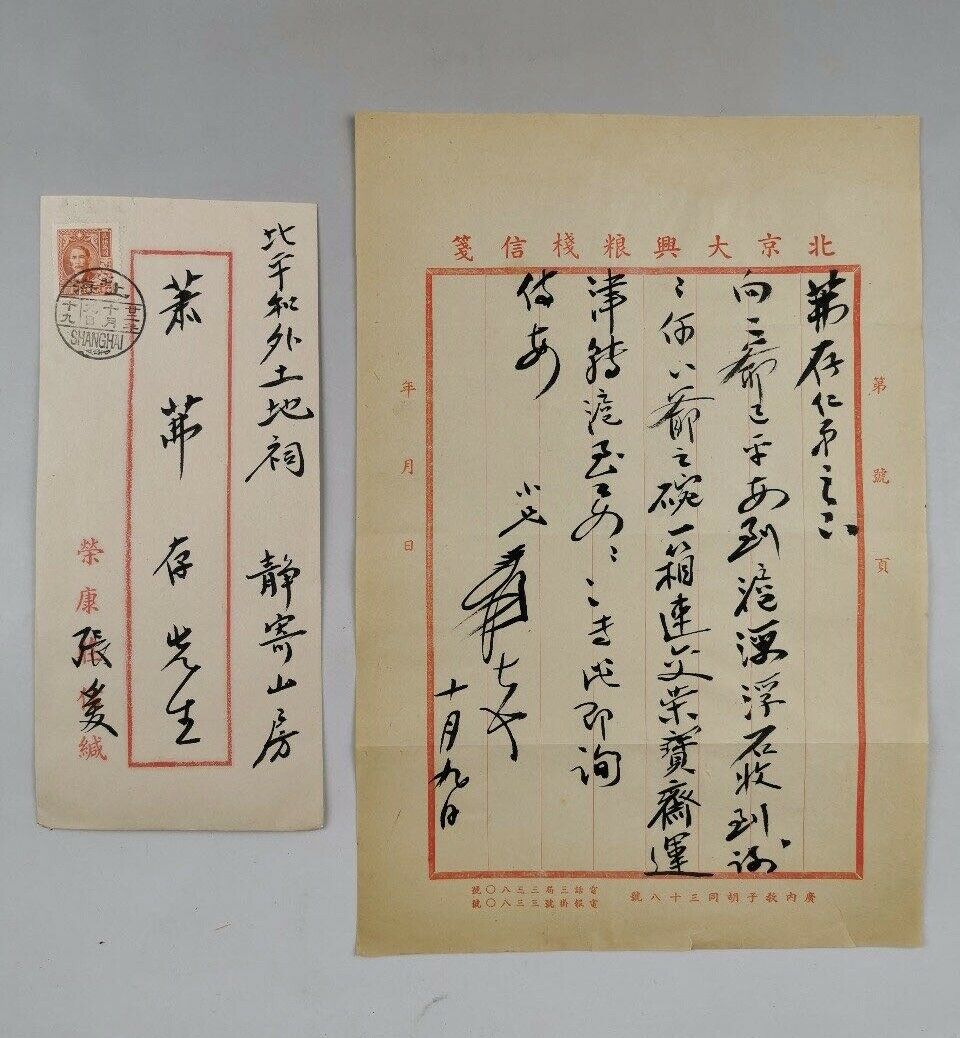 北平和外土地祠 静寄山房
萧茀存先生
榮康
張爰
緘
上海
十月
九日
SHANGHAI
北京大興粮栈信箋
第 號 頁
茀存仁弟足下
向二爺已平安到滬漂浮石收到謝
〻何八爺之碗一箱速交榮寶齋運
津轉滬至要〻〻專此即詢
侍安
小兄爰
十月九日
年 月 日
廣內教子胡同三十八號
電話三局三三八〇號
電報掛號三三八〇號